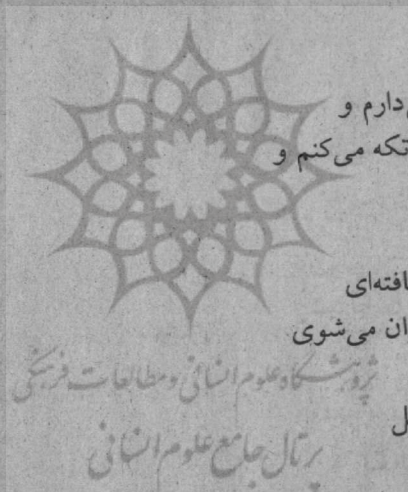 دارم و
تکه می‌کنم و
افته‌ای
ان می‌شوی
پژوهشگاه علوم انسانی و مطالعات فرهنگی
ل
پرتال جامع علوم انسانی